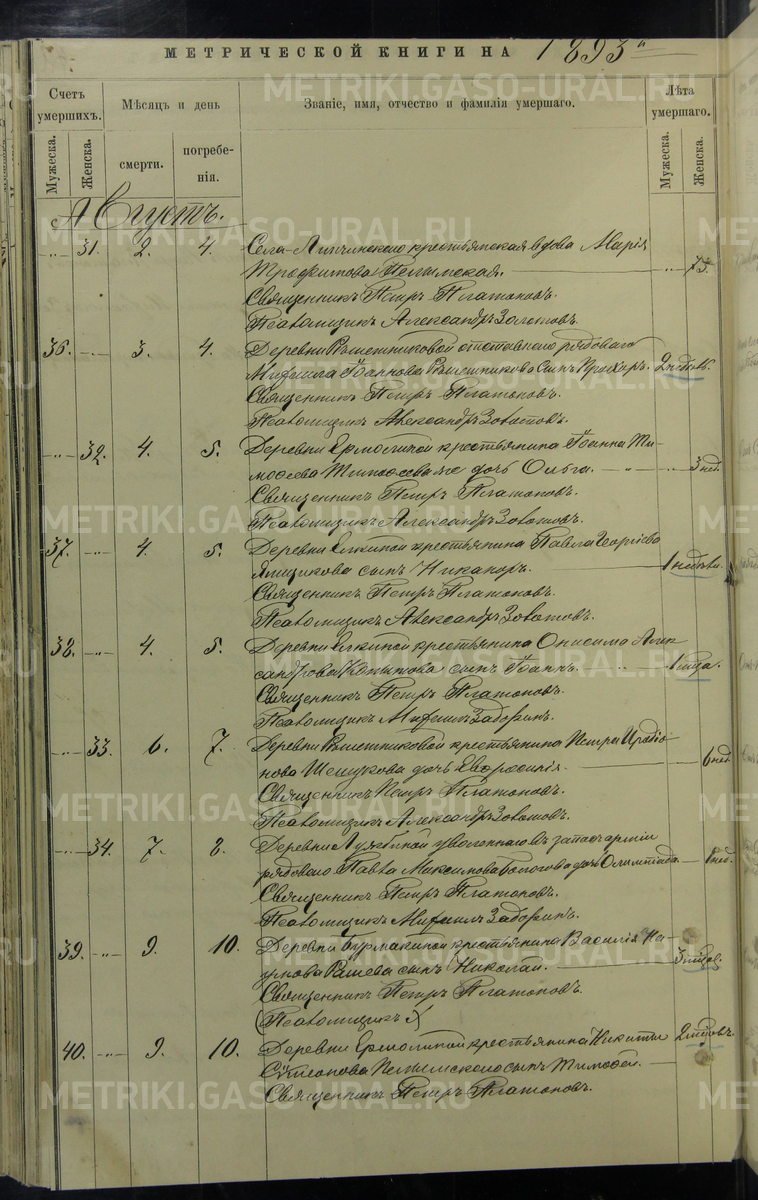 МЕТРИЧЕСКОЙ КНИГИ НА 1893
Счетъ умершихъ. Мѣсяцъ и день Званіе, имя, отчество и фамилія умершаго. Лѣта умершаго.
Мужеска. Женска. смерти. погребенія. Мужеска. Женска.
Августъ.
31. 2. 4. Села Липчинскаго крестьянская вдова Марія
Трофимова Пелымская. 75.
Священникъ Петръ Платоновъ.
Псаломщикъ Александръ Золотовъ.
36. 3. 4. Деревни Решетниковой отставнаго рядоваго
Михаила Іоаннова Решетникова сынъ Прохоръ. 2 недѣль.
Священникъ Петръ Платоновъ.
Псаломщикъ Александръ Золотовъ.
32. 4. 5. Деревни Ермолиной крестьянина Іоанна Ти-
мофеева дочь Ольга. 3 нед.
Священникъ Петръ Платоновъ.
Псаломщикъ Александръ Золотовъ.
37. 4. 5. Деревни Елкиной крестьянина Павла Георгіева
Ямщикова сынъ Никаноръ. 1 недѣли.
Священникъ Петръ Платоновъ.
Псаломщикъ Александръ Золотовъ.
38. 4. 5. Деревни Елкиной крестьянина Онисима Алек
сандрова Копытова сынъ Іоаннъ. 1 года.
Священникъ Петръ Платоновъ.
Псаломщикъ Михаилъ Задоринъ.
33. 6. 7. Деревни Решетниковой крестьянина Петра Иродіо
нова дочь Евфросинія. 6 нед.
Священникъ Петръ Платоновъ.
Псаломщикъ Александръ Золотовъ.
34. 7. 8. Деревни уволеннаго въ запасъ арміи
рядоваго Павла Максимова дочь Олимпіада. 1 нед.
Священникъ Петръ Платоновъ.
Псаломщикъ Михаилъ Задоринъ.
39. 9. 10. Деревни Бурмакиной крестьянина Василія На-
умова сынъ Николай.
Священникъ Петръ Платоновъ.
(Псаломщикъ)
40. 9. 10. Деревни Ермолиной крестьянина Никиты
Сѵмеонова Пелымскаго сынъ Тимофей.
Священникъ Петръ Платоновъ.
METRIKI.GASO-URAL.RU